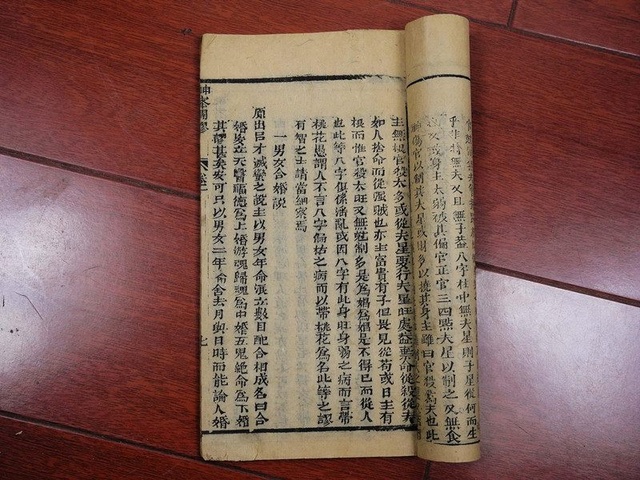 乎非特無夫又且無子蓋八字柱中無夫星則子星從何而生
身主太弱被其偏官正官三四點夫星以制之又無食
傷官以制其夫星或財多以撓其身主雖曰官殺爲夫也此
主無根官殺太多或從夫星要行夫星旺處益要命從殺從夫
如人捨命而從强賊也亦主富貴有子但畏見從荷或日主有
根而惟官殺太旺又無制多是爲娼爲婢是不得已而從人
也此等八字傷係淫亂或因八字有此身旺身弱之病而以帶
桃花愚謂人不言八字偏枯之病而以帶桃花爲名此等之謬
有智之士請當細察焉
一男女合婚説
原出呂才滅蠻之説主以男女年命飛立數目配合相成名曰合
婚以立天醫福德爲上婚游魂歸魂爲中婚五鬼絶命爲下婚
其謬甚矣安可只以男女二年命舍去月與日時而能論人婚
神峯闢謬 卷二